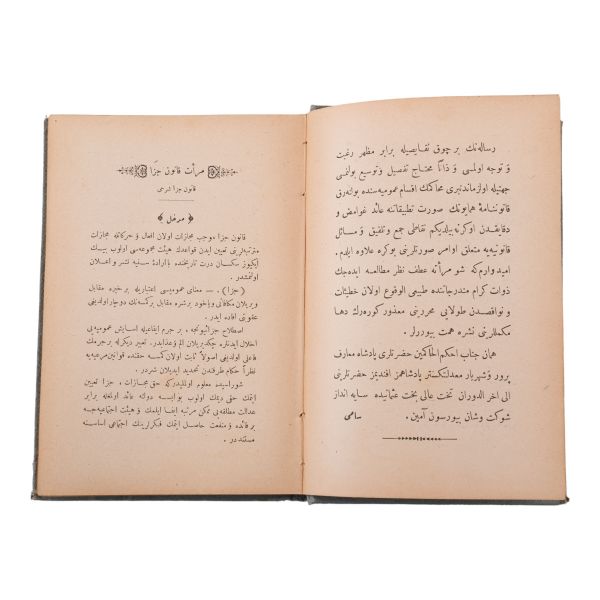 رساله‌نك بر چوق نقايصيله برابر مظهر رغبت
و توجه اولمسى و ذاتاً محتاج تفصيل و توسيع بولنمسى
جهتيله اولزماندنبرى محاكمك اقسام عموميه‌سنده بوله‌رق
قانوننامهٔ همايونك صورت تطبيقاتنه عائد غوامض و
دقايقدن اوكرنه بيلديكم نقاطى جمع و تلفيق و مسائل
قانونيه‌يه متعلق اوامر صورتلرينى بوكره علاوه ايلدم.
اميدوارم‌كه شو مرأته عطف نظر مطالعه ايده‌جك
ذوات كرام مندرجاتنده طبيعى الوقوع اولان خطيئات
و نواقصدن طولايى محررينى معذور كوره‌رك دها
مكمللرينى نشره همت بيوررلر.
همان جناب احكم الحاكمين حضرتلرى پادشاه معارف
پرور و شهريار معدلتكستر پادشاهمز افنديمز حضرتلرينى
الى اخر الدوران تخت عالى بخت عثمانيده سايه انداز
شوكت وشان بيورسون آمين. سامى
مرأت قانون جزا
قانون جزا شرحى
﴿ مدخل ﴾
قانون جزاء موجب مجازات اولان افعال و حركاته مجازات
مترتبه‌لرينى تعيين ايدن قواعدك هيئت مجموعه‌سى اولوب بيك
ايكيوز سكسان درت تاريخنده بااراده‌ٔ سنيه نشر و اعلان
اولنمشدر.
(جزا) . — معناى عموميسى اعتباريله بر خيره مقابل
ويريلان مكافاتى وياخود بر شره مقابل بركمسه‌نك دوچار اولديغى
عقوبتى افاده ايدر.
اصطلاح جزائيونجه. بر جرم ايقاعيله آسايش عموميه‌يى
اخلال ايدنلره چكديريلان الم وعذابدر. تعبير ديكرله بر جرمك
فاعلى اولديغى اصولاً ثابت اولان كمسه حقنده قوانين مرعيه‌يه
نظراً حكام طرفندن تحديد ايديلان شردر.
شوراسيده معلوم اولملیدركه حق مجازات. جزا تعيين
ايتمك حقى ديمك اولوب بوايسه دولته عائد اولغله برابر
عدالت مطلقه‌يى تمكن مرتبه ايفا ايلمك و هيئت اجتماعيه‌جه
بر فائده و منفعت حاصل ايتمك فكرلرينك اجتماعى اساسنه
مستنددر.